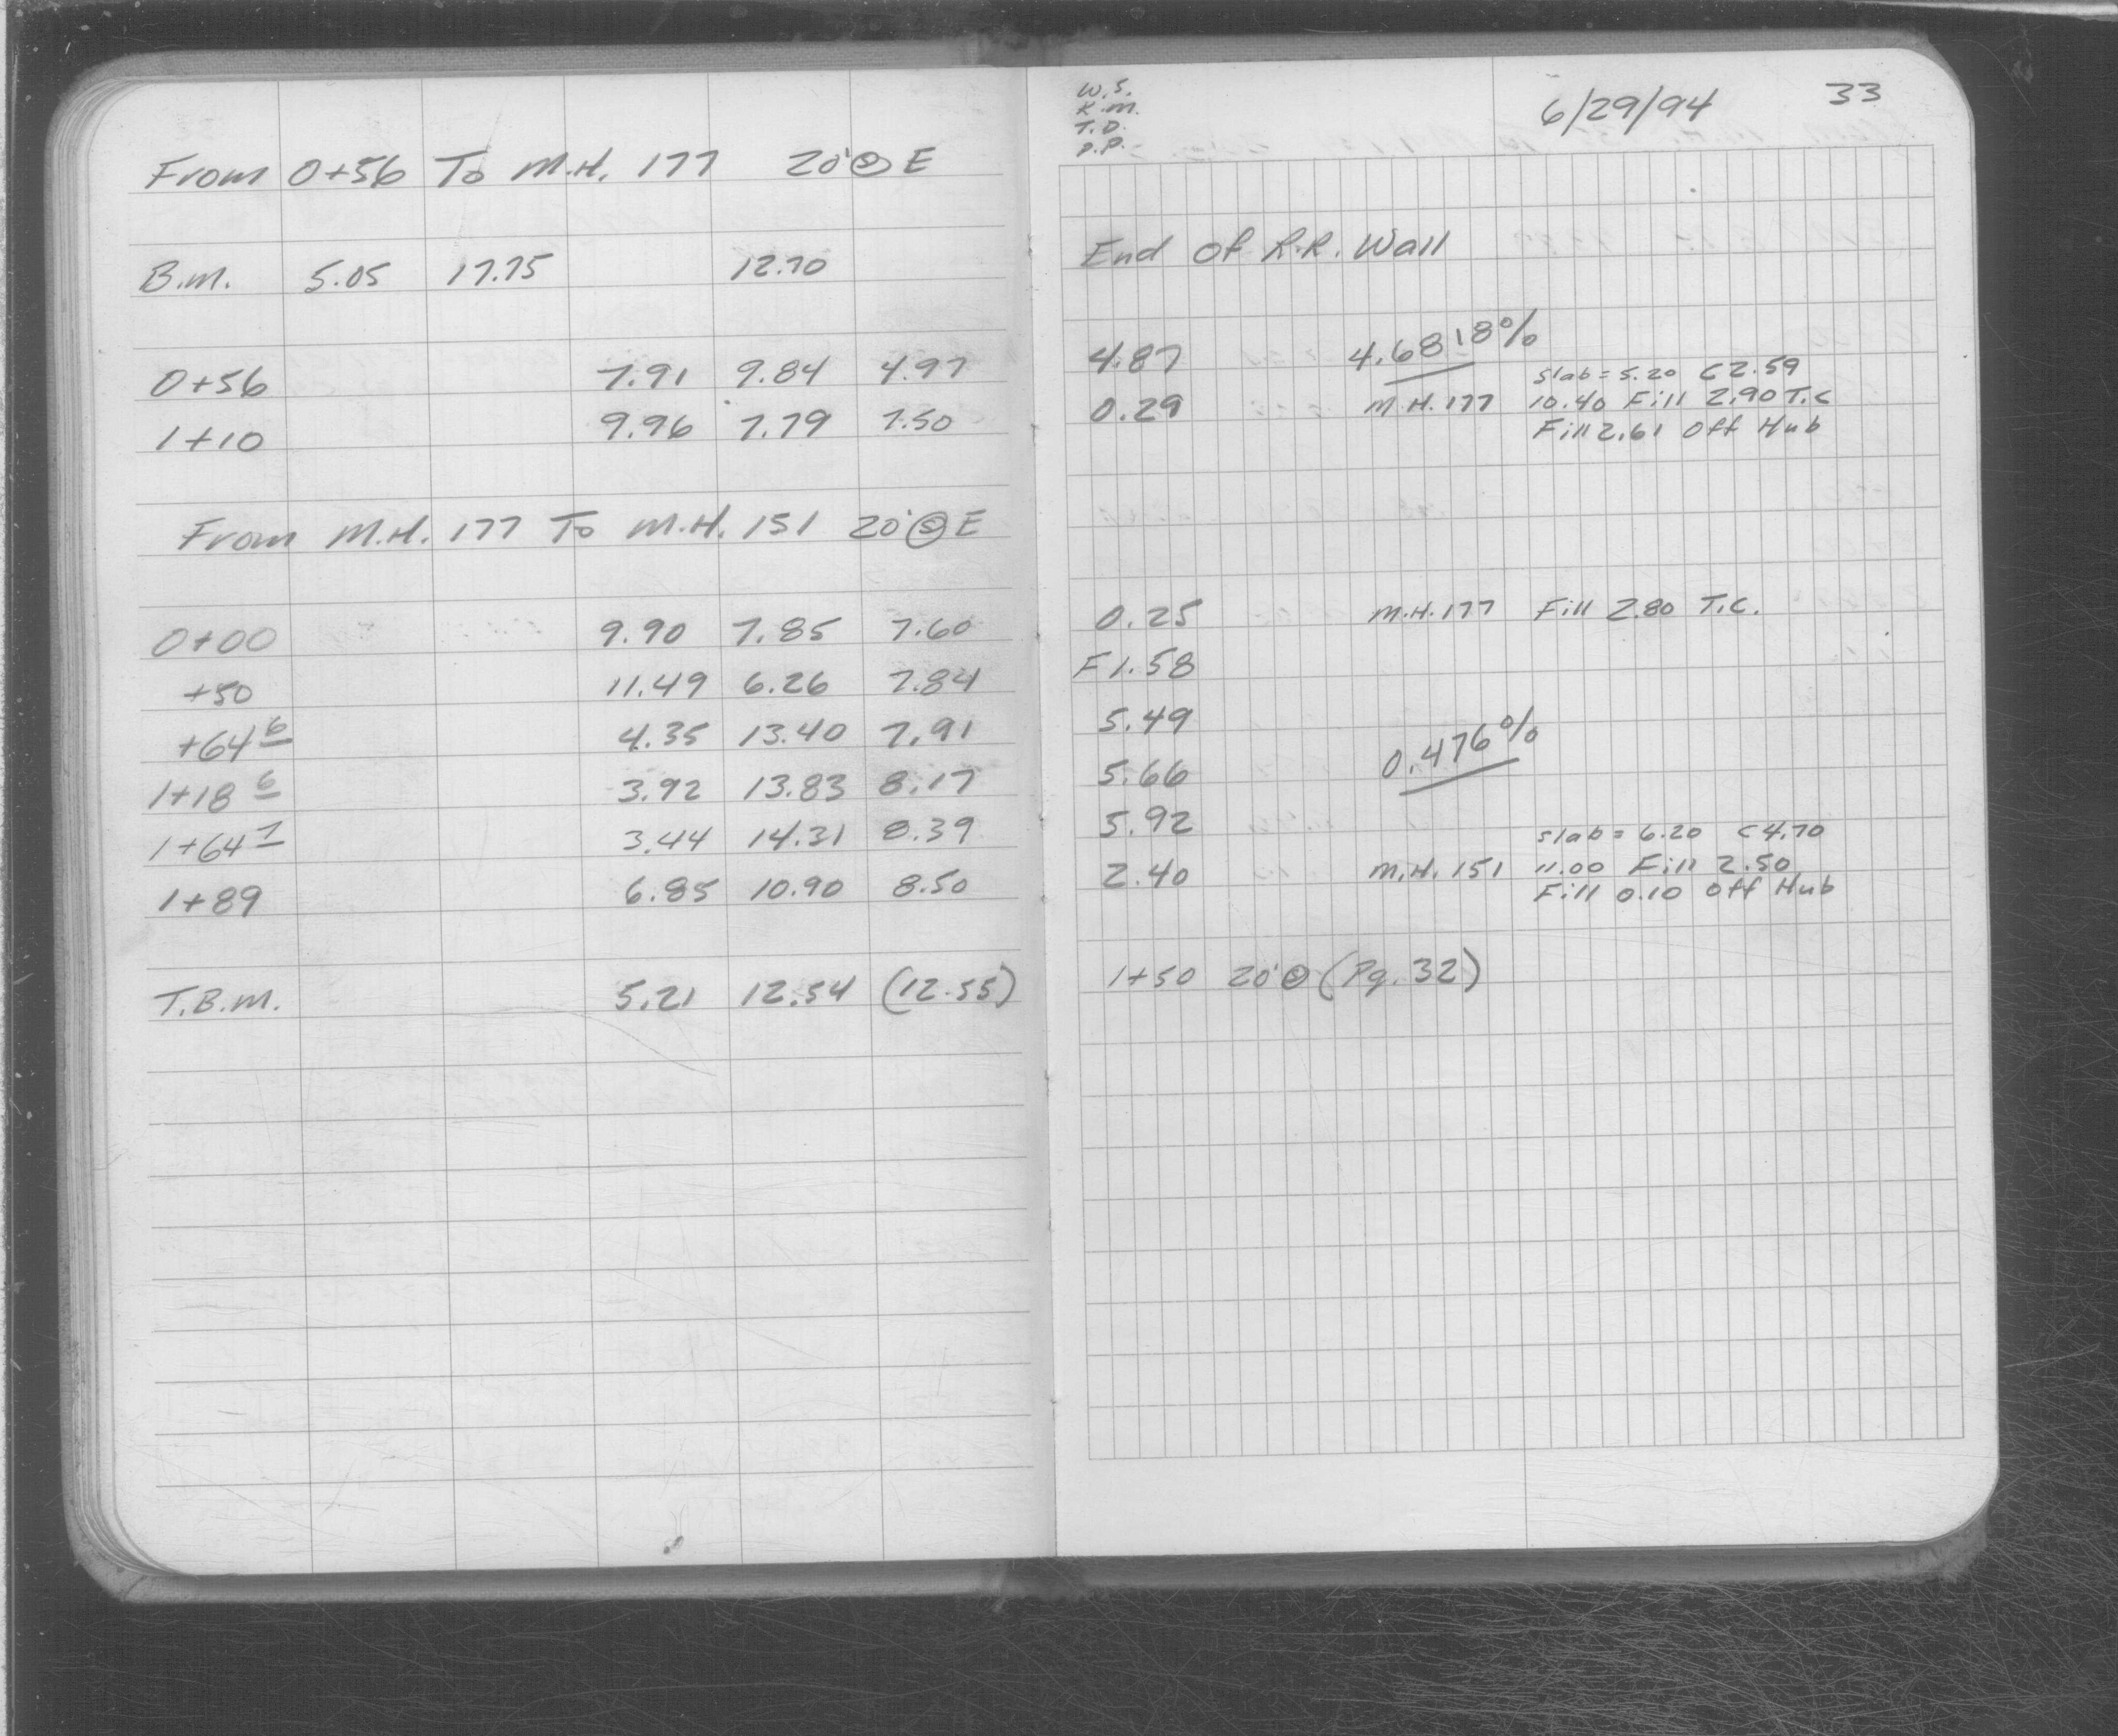 From 0+56 To M.H. 177 20' E
B.M. 5.05 17.75 12.70
0+56 7.91 9.84 4.97
1+10 9.96 7.79 7.50
From M.H. 177 To M.H. 151 20' Ⓢ E
0+00 9.90 7.85 7.60
+50 11.49 6.26 7.84
+64 6 4.35 13.40 7.91
1+18 6 3.92 13.83 8.17
1+64 7 3.44 14.31 8.39
1+89 6.85 10.90 8.50
T.B.M. 5.21 12.54 (12.55)
W.S.
K.M.
T.D.
P.P.
6/29/94 33
End Of R.R. Wall
4.87 4.6818%
slab = 5.20 C2.59
0.29 M.H. 177 10.40 Fill 2.90 T.C
Fill 2.61 Off Hub
0.25 M.H. 177 Fill 2.80 T.C.
F1.58
5.49
5.66 0.476%
5.92
slab = 6.20 C4.70
2.40 M.H. 151 11.00 Fill 2.50
Fill 0.10 Off Hub
1+50 20' (Pg. 32)